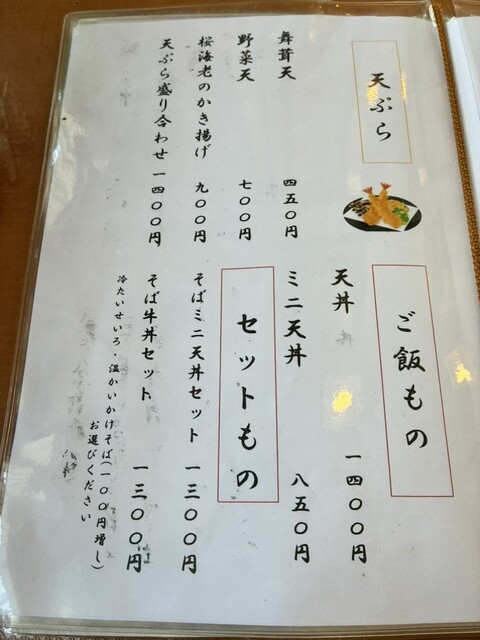 天ぷら
舞茸天 四五〇円
野菜天 七〇〇円
桜海老のかき揚げ 九〇〇円
天ぷら盛り合わせ 一四〇〇円
ご飯もの
天丼 一四〇〇円
ミニ天丼 八五〇円
セットもの
そばミニ天丼セット 一三〇〇円
そば牛丼セット 一三〇〇円
冷たいせいろ・温かいかけそば(一〇〇円増し)
お選びください